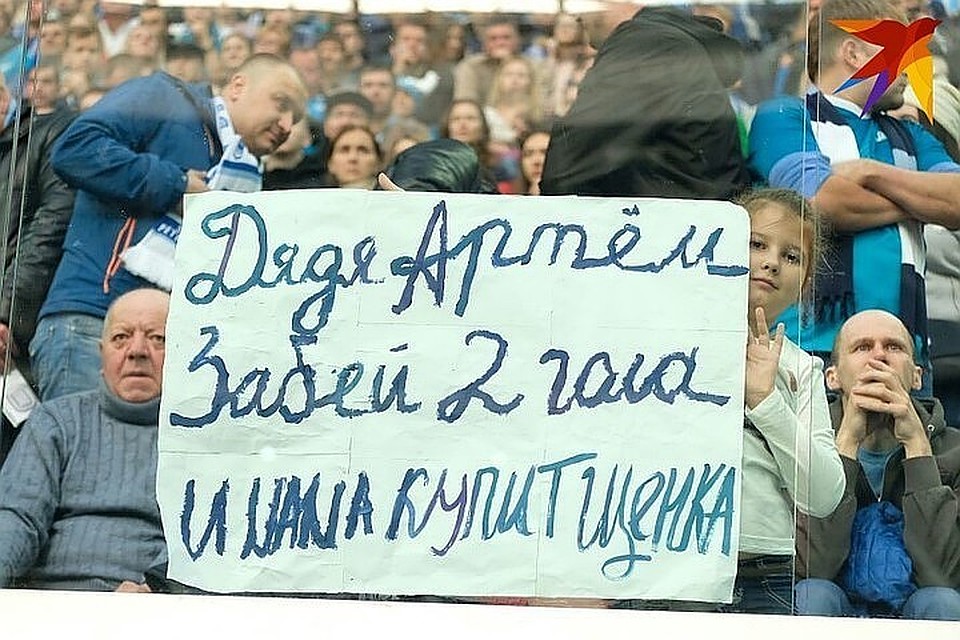 Дядя Артём
Забей 2 гола
И ПАПА КУПИТ ЩЕНКА